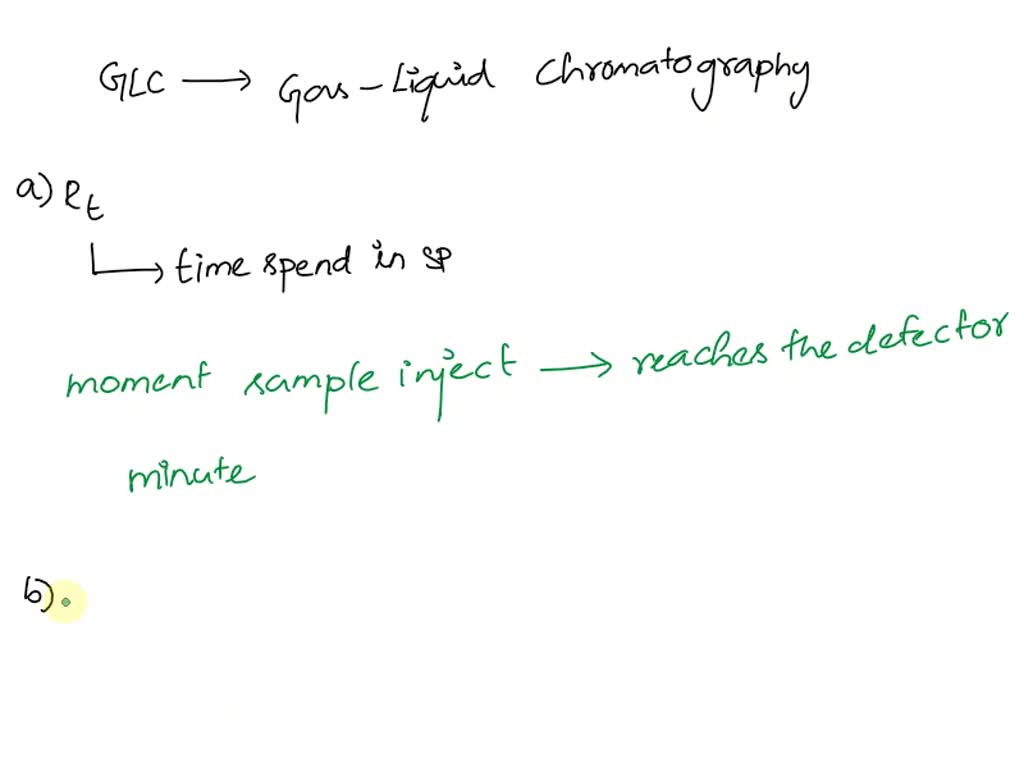 GLC → Gas-Liquid Chromatography
a) Rt
↳ time spend in SP
moment sample inject → reaches the detector
minute
b).